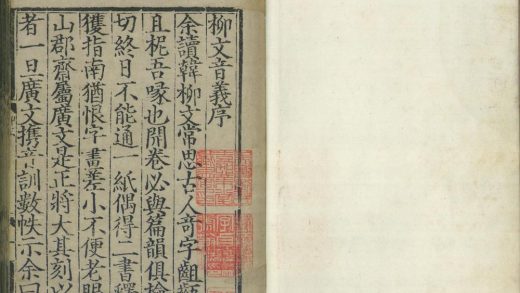 柳文音義序
余讀韓柳文常思古人奇字齟
且枙吾喙也開卷必與篇韻俱檢
切終日不能通一紙偶得二書釋
獲指南猶恨字畫差小不便老眼
山郡齋屬廣文是正將大其刻以
者一旦廣文携音訓數帙示余曰